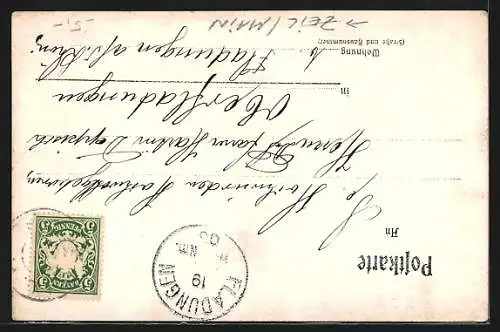 Postkarte
An
Sr. Hochwürden Hochwohlgeboren
Herrn Pfarrer Martin
Oberfladungen
in Fladungen a/Rh.
Wohnung
(Straße und Hausnummer)
BAYERN
5 PFENNIG 5
FLADUNGEN
19
NM.
→ ZEIL/MAIN
-5,-